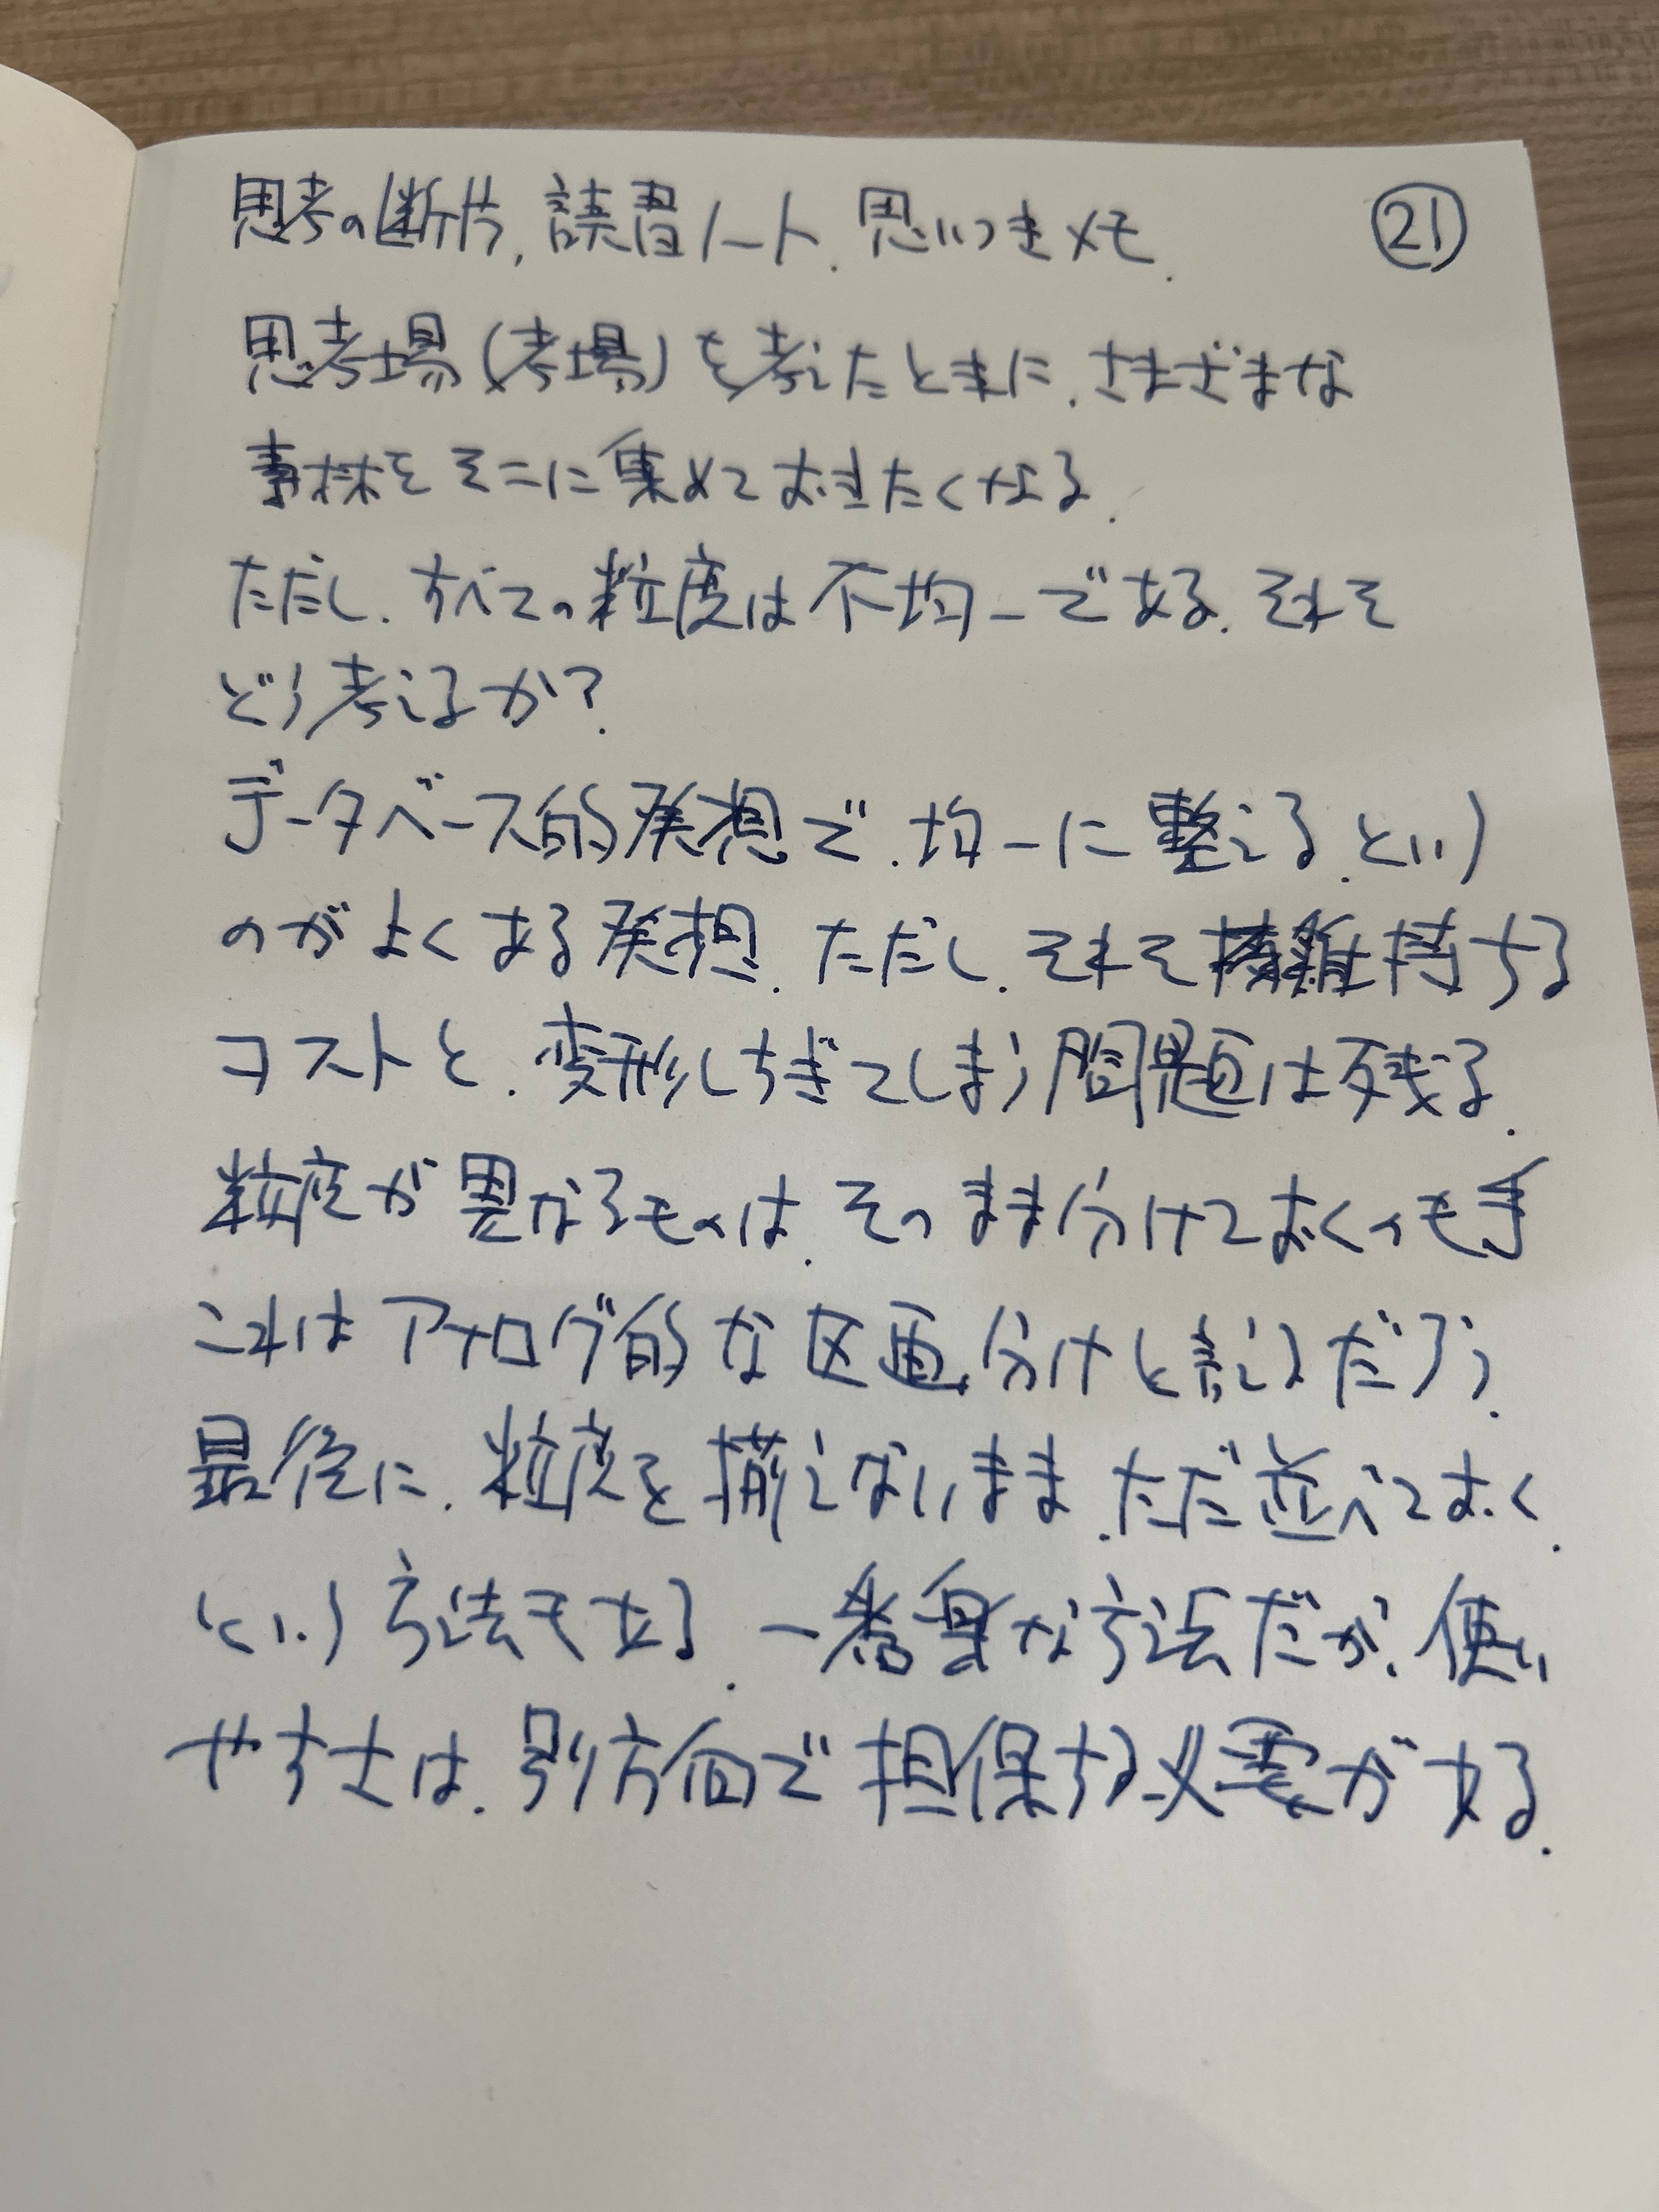 思考の断片、読書ノート、思いつきメモ、
㉑
思考場(考場)を考えたときに、さまざまな
素材をそこに集めておきたくなる。
ただし、すべての粒度は不均一である。それを
どう考えるか?
データベース的発想で、均一に整える、という
のがよくある発想。ただし、それを維持する
コストと、変形しすぎてしまう問題は残る。
粒度が異なるものは、そのまま分けておくのも手
これはアナログ的な区画分けと言えるだろう。
最後に、粒度を揃えないまま、ただ並べておく、
という方法もある。一番楽な方法だが、使い
やすさは、別方向で担保する必要がある。